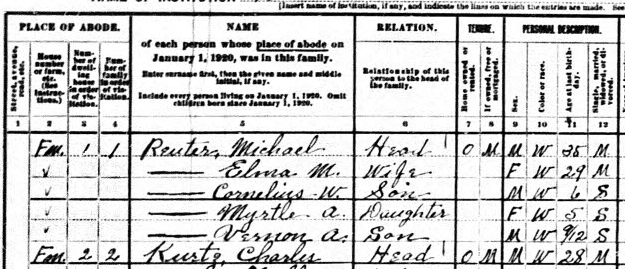 NAME OF INSTITUTION
[Insert name of institution, if any, and indicate the lines on which the entries are made. See
PLACE OF ABODE. NAME RELATION. TENURE. PERSONAL DESCRIPTION.
of each person whose place of abode on January 1, 1920, was in this family.
Enter surname first, then the given name and middle initial, if any.
Include every person living on January 1, 1920. Omit children born since January 1, 1920.
Relationship of this person to the head of the family.
Street, avenue, road, etc.
House number or farm, etc. (See instructions.)
Number of dwelling house in order of visitation.
Number of family in order of visitation.
Home owned or rented.
If owned, free or mortgaged.
Sex.
Color or race.
Age at last birthday.
Single, married, widowed, or divorced.
1 2 3 4 5 6 7 8 9 10 11 12
Fm. 1 1 Reuter, Michael Head O M M W 35 M
— Elma M. Wife F W 29 M
— Cornelius W. Son M W 6 S
— Myrtle A. Daughter F W 5 S
— Vernon A. Son M W 9/12 S
Fm. 2 2 Kurtz, Charles Head O M M W 28 M